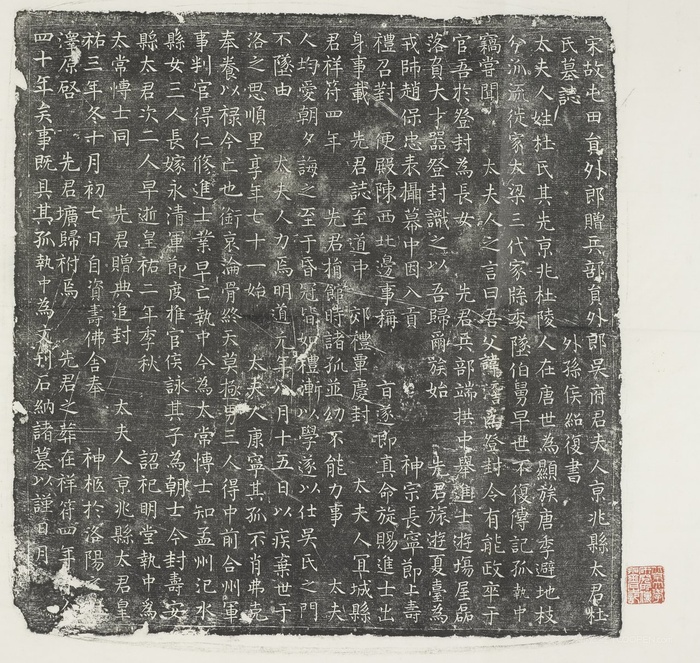 宋故屯田員外郎贈兵部員外郎吳府君夫人京兆縣太君杜
氏墓誌 外孫侯紹復書
太夫人姓杜氏其先京兆杜陵人在唐世為顯族唐季避地枝
分派流徙家太梁三代家牒委墜伯舅早世不復傳記孤執中
竊嘗聞 太夫人之言曰吾父諱 為登封令有能政卒于
官吾於登封為長女 先君兵部端拱中舉進士遊場屋磊
落負大才器登封識之以吾歸爾族始 先君旅遊夏臺為
戎帥趙保忠表攝幕中因入貢 神宗長寧節上壽
禮召對 便殿陳西北邊事稱 旨遂即真命旋賜進士出
身事載 先君誌至道中 郊禮畢慶封 太夫人宜城縣
君祥符四年 先君捐館時諸孤並幼不能力事 太夫
人均愛朝夕誨之至于昏冠皆如禮漸以學遂以仕吳氏之門
不墜由 太夫人力焉明道元年八月十五日以疾棄世于
洛之思順里享年七十一始 太夫人康寧其孤不肖弗克
奉養以祿今亡也銜哀淪骨終天莫極男三人得中前合州軍
事判官得仁修進士業早亡執中今為太常博士知孟州汜水
縣女三人長嫁永清軍節度推官侯詠其子為朝士今封壽安
縣太君次二人早逝皇祐二年季秋 詔祀明堂執中為
太常博士同 先君贈典追封 太夫人京兆縣太君皇
祐三年冬十月初七日自資壽佛舍奉 神柩於洛陽
澤原啓 先君壙歸祔焉 先君之葬在祥符四年 今
四十年矣事既具其孤執中為文刊石納諸墓以謹日月